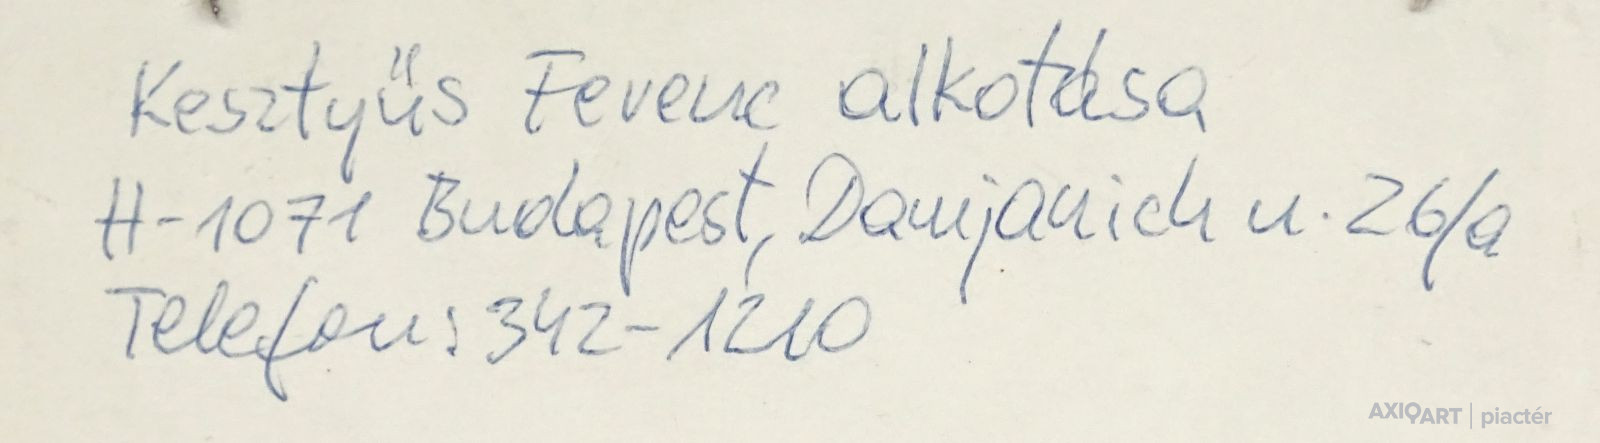 Kesztyűs Ferenc alkotása
H-1071 Budapest, Damjanich u. 26/a
Telefon: 342-1210
AXIOART | piactér